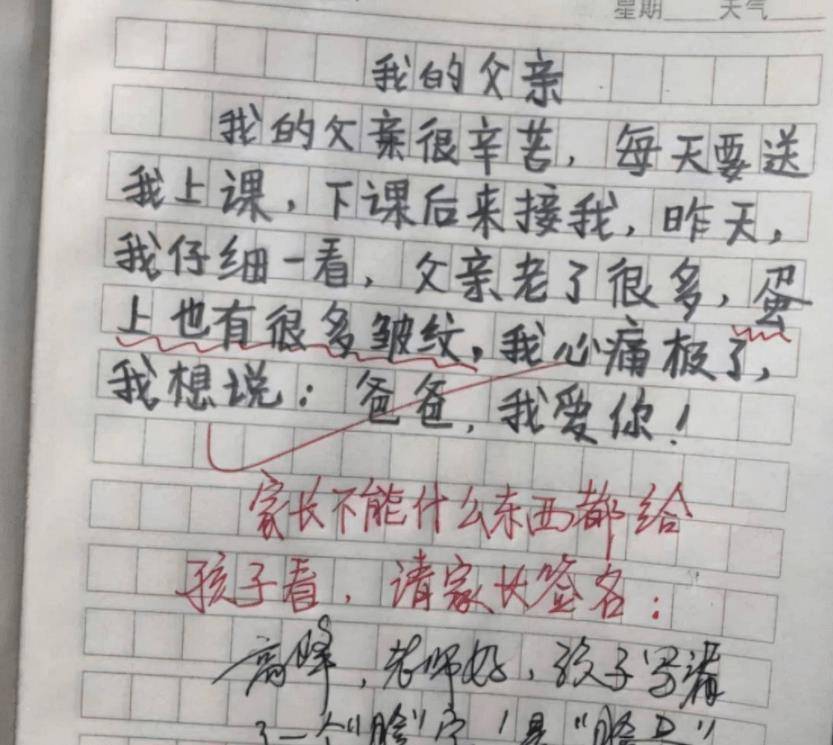 星期 天气
我的父亲
我的父亲很辛苦，每天要送
我上课，下课后来接我，昨天，
我仔细一看，父亲老了很多，蛋
上也有很多皱纹。我心痛极了，
我想说：爸爸，我爱你！
家长不能什么东西都给
孩子看，请家长签名：
高峰，老师好，孩子写错
了一个“脸”字，是“脸上”